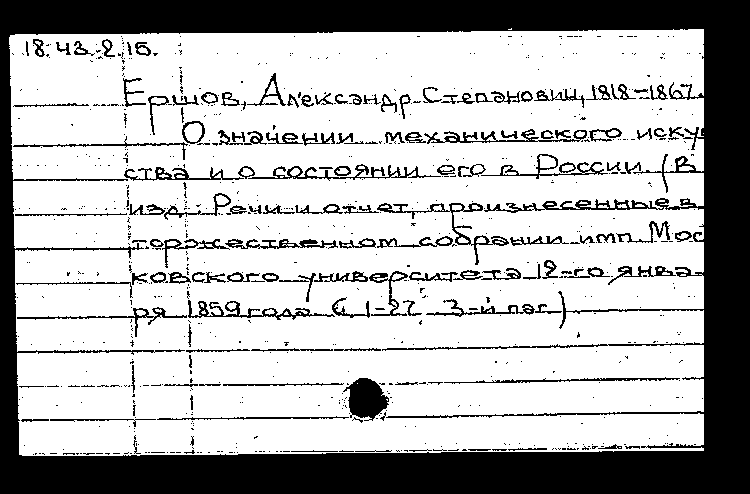 18.43.2.15.
Ершов, Александр Степанович, 1818-1867.
О значении механического иску
ства и о состоянии его в России. (В
изд.: Речи и отчет, произнесенные в
торжественном собрании имп. Мос
ковского университета 12-го янва-
ря 1859 года. С. 1-27. 3-й паг.)